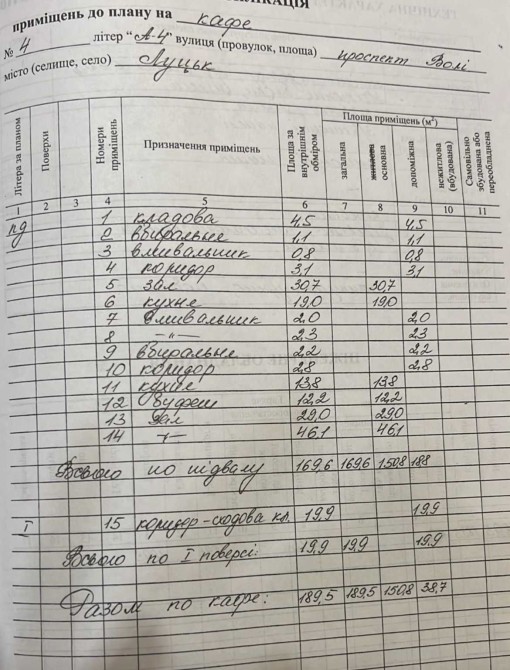 ЕКСПЛІКАЦІЯ
приміщень до плану на кафе
№ 4 літер “А-4” вулиця (провулок, площа) проспект Волі
місто (селище, село) Луцьк
Літера за планом | Поверхи | | Номери приміщень | Призначення приміщень | Площа за внутрішнім обміром | Площа приміщень (м²) | загальна | житлова основна | допоміжна | нежитлова (вбудована) | Самовільно збудована або переобладнена
1 2 3 4 5 6 7 8 9 10 11
пд 1 кладова 4,5 4,5
2 вбиральня 1,1 1,1
3 вмивальник 0,8 0,8
4 коридор 3,1 3,1
5 зал 30,7 30,7
6 кухня 19,0 19,0
7 вмивальник 2,0 2,0
8 –„– 2,3 2,3
9 вбиральня 2,2 2,2
10 коридор 2,8 2,8
11 кухня 13,8 13,8
12 буфет 12,2 12,2
13 зал 29,0 29,0
14 –„– 46,1 46,1
Всього по підвалу 169,6 169,6 150,8 18,8
I 15 коридор-сходова кл. 19,9 19,9
Всього по I поверсі: 19,9 19,9 19,9
Разом по кафе: 189,5 189,5 150,8 38,7